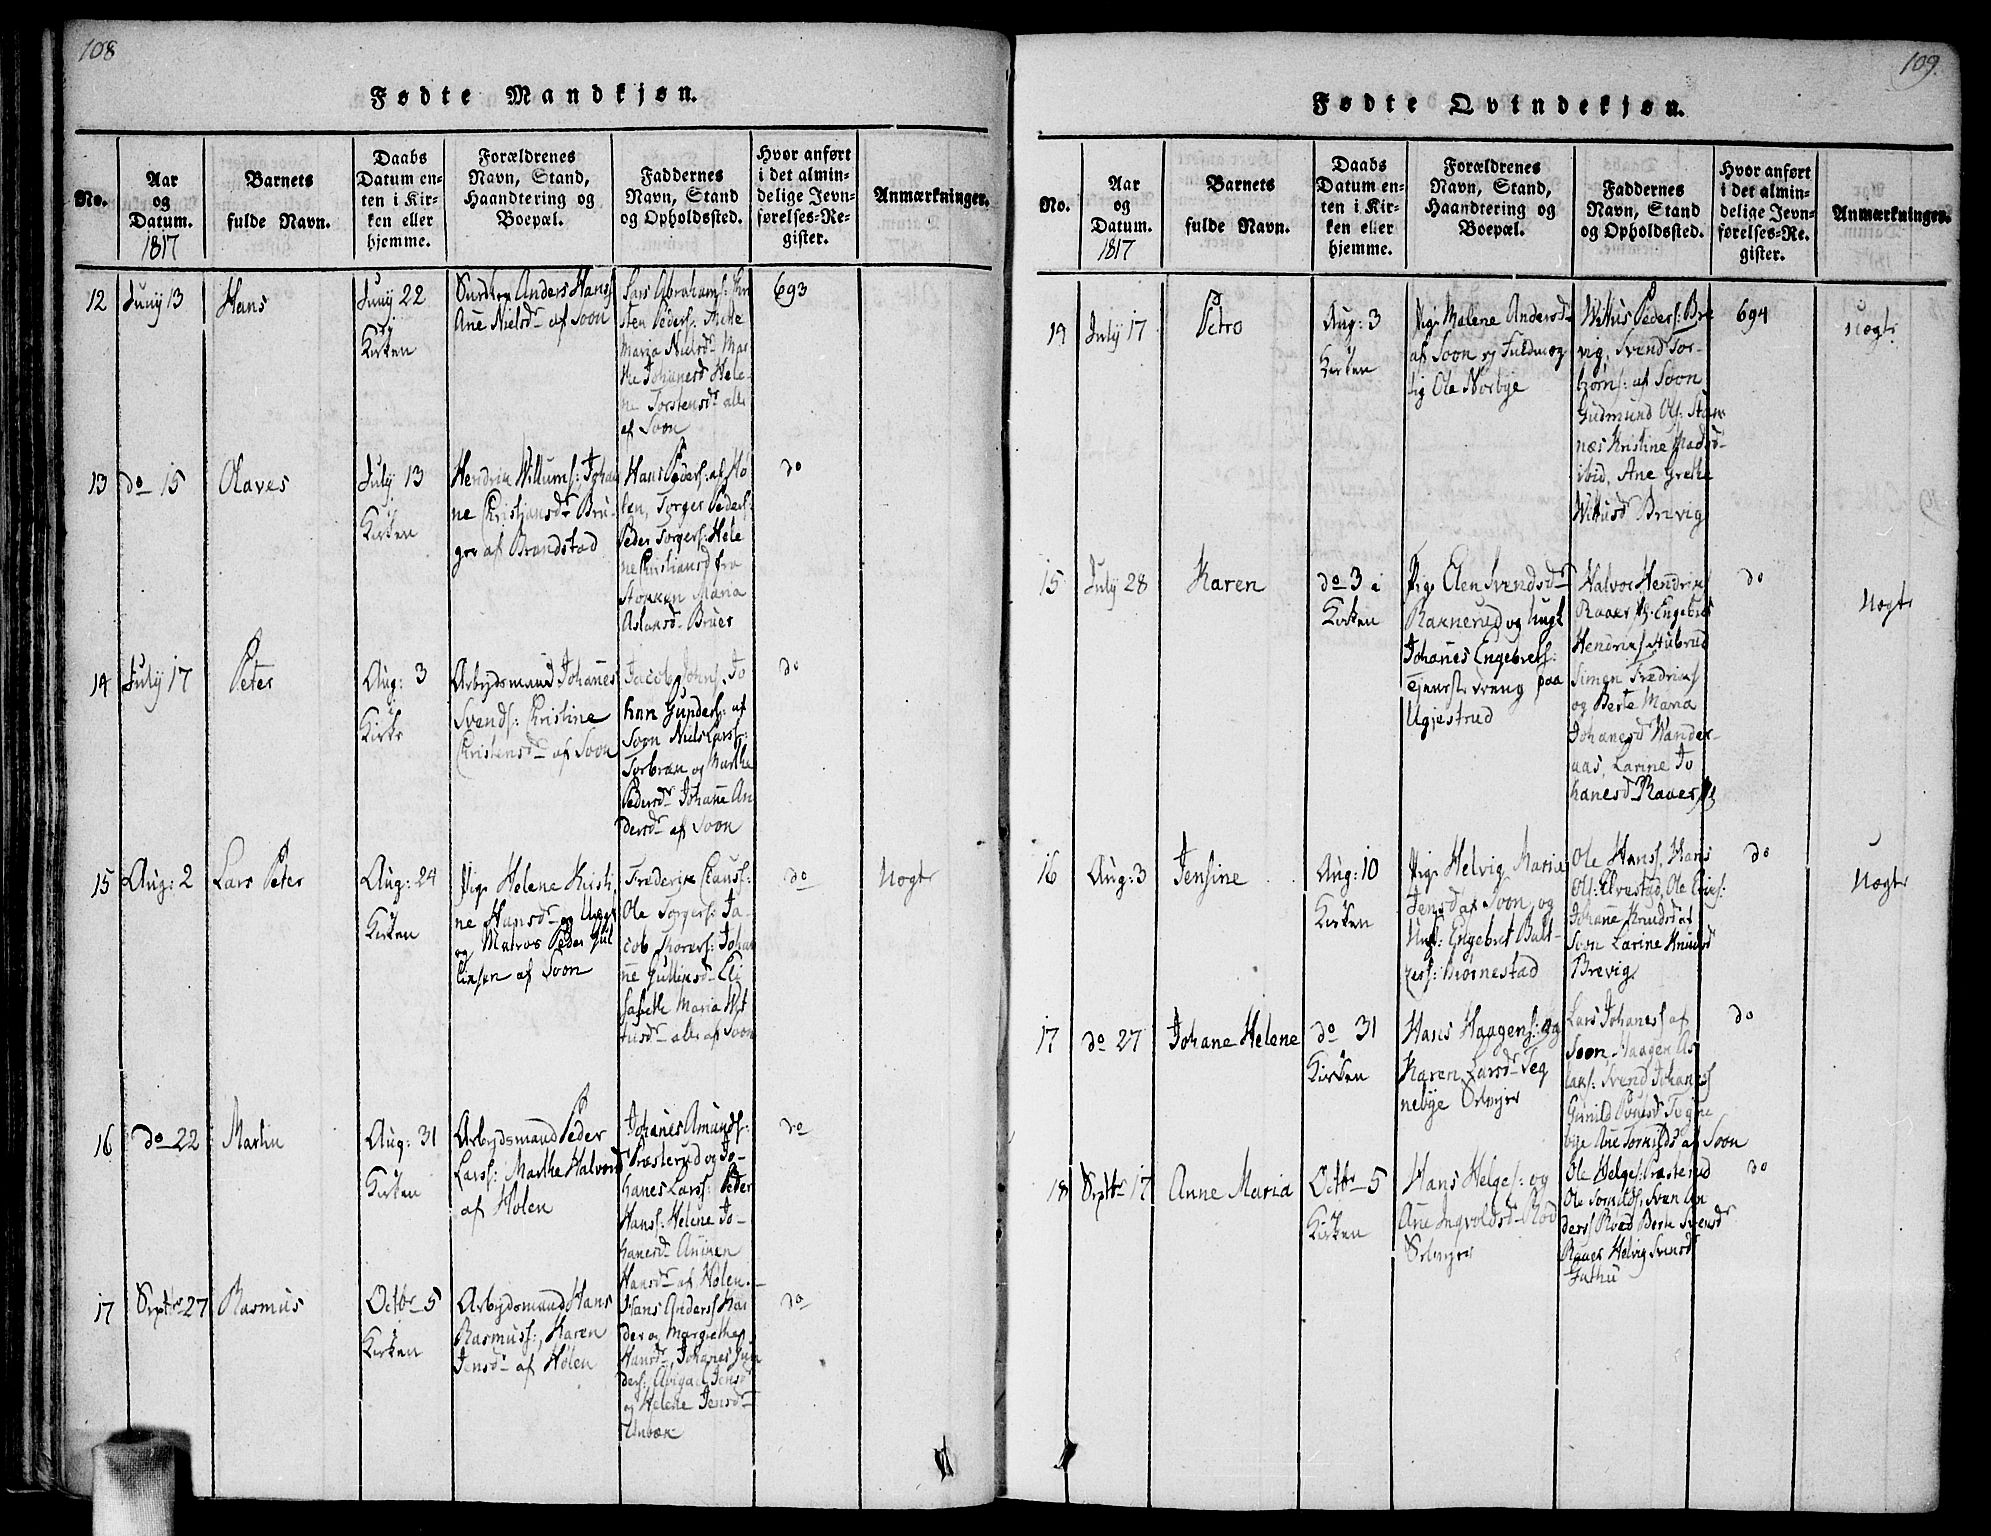 108
Fødte Mandkjøn.
No.
Aar
og
Datum.
1817
Barnets
fulde Navn.
Daabs
Datum en-
ten i Kir-
ken eller
hjemme.
Forældrenes
Navn, Stand,
Haandtering og
Boepæl.
Faddernes
Navn, Stand
og Opholdssted.
Hvor anført
i det almin-
delige Jevn-
førelses-Re-
gister.
Anmærkninger.
12
Juny 13
Hans
Juny 22
i
Kirken
Anders Hanss:
Ane Nielsdr af Soon
Lars Abrahams: Chri
sten Peders: Mette
Maria Nielsdr Mar
the Johanesd Hele-
ne Torstensdr alle
af Soon
693
13
do 15
Olaves
July 13
i
Kirken
Hendrik Willums: Johan
ne Christiansdr Bru-
ger af Brandstad
Hans Peders: af Hø
len, Torger Peders:
Peder Torgers: Hele
ne Christiansd fra
Stokken Maria
Aslaksd Bruer
do
14
July 17
Peter
Aug: 3
i
Kirke
Arbejdsmand Johanes
Svends: Christine
Christensdr af Soon
Jacob Johns: Jo
han Gunders: af
Soon Niels Lars:
Torbran og Marthe
Pedersdr Johane An
dersdr af Soon
do
15
Aug: 2
Lars Peter
Aug: 24
i
Kirken
Pige Helene Kristi
ne Hansdr og
og Matros Peder Gul
liksen af Soon
Frederik Clauss:
Ole Torgers: Ja-
cob Thorers: Johan
ne Gulliksd Eli
sabeth Maria Wit
tusdr alle af Soon
do
Uægte
16
do 22
Martin
Aug: 31
i
Kirken
Arbejdsmand Peder
Larss: Marthe Halvord
af Hølen
Johanes Amunds:
Præsterud og Jo-
hanes Larss: Peder
Hanss: Helene Jo-
hanesdr Aniken
Hansdr af Hølen.
do
17
Septbr 27
Rasmus
Octbr 5
i
Kirken
Arbejdsmand Hans
Rasmuss:, Karen
Jensdr af Hølen
Hans Anderss
og Margrethe
Hansdr, Johanes Gun
ders: Abigael Jensd
og Helene Jensdr
do
109.
Fødte Qvindekjøn.
No.
Aar
og
Datum.
1817
Barnets
fulde Navn.
Daabs
Datum en-
ten i Kir-
ken eller
hjemme.
Forældrenes
Navn, Stand,
Haandtering og
Boepæl.
Faddernes
Navn, Stand
og Opholdssted.
Hvor anført
i det almin-
delige Jevn-
førelses-Re-
gister.
Anmærkninger.
14
July 17
Petro
Aug: 3
i
Kirken
Pige Malene Andersdr
af Soon og Fuldmæg
tig Ole Norbye
Wittus Peders: Bre
vig, Svend Tor-
biørns: af Soon
Gudmund Ols:
næs Kristine Madsd
ibid, Ane Grethe
Wittusd Brevig
694
Uægte
15
July 28
Karen
do 3 i
Kirken
Pige Elen Svendsdr
Raknerud og Ungk
Johanes Engebrets:
Tjenestedreng paa
Ugjestrud
Halvor Hendriks
Raaer Engebret
Hendriks Stubrud
Simen Fredriks
og Berte Maria
Johanesd Wander-
aas, Larine Jo
hanesd Raaer
do
Uægte
16
Aug: 3
Jensine
Aug: 10
i
Kirken
Pige Helvig Maria
Jensd af Soon og
Ungk: Engebret Balt-
zers: Biørnestad
Ole Hanss, Hans
Ols: Elvestad, Ole Eriks:
Johane Knudsd af
Soon Larine Knudsd
Brevig
do
Uægte
17
do 27
Johane Helene
do 31
i
Kirken
Hans Haagens: og
Karen Larsdr Teg
nebye Selvejer
Lars Johaness af
Soon Haagen As
laks: Svend Johaness
Gunild Povelsd Tegne
bye Ane Torkildsd af Soon
do
18
Septbr 17
Anne Maria
Octbr 5
i
Kirken
Hans Helges: og
Ane Ingvoldsdr Rød
Selvejer
Ole Helges: Præsterud
Ole Torkilds, Sven An
derss Roed Berte Svensd
Raaer Helvig Svensd
do